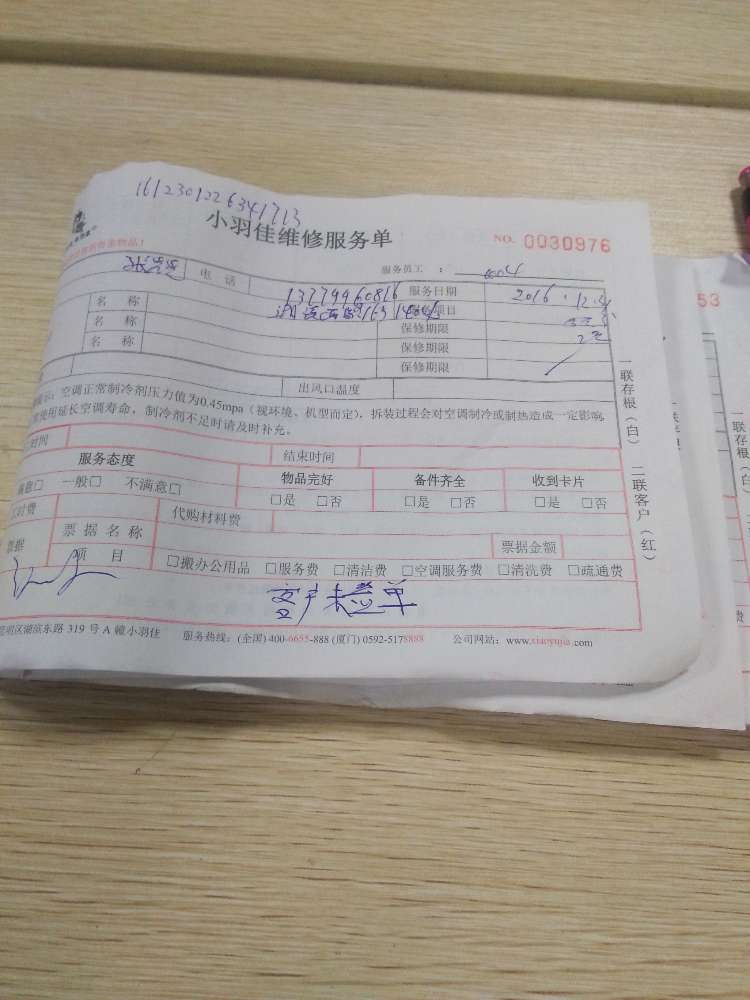 1612301226341713
小羽佳维修服务单 NO. 0030976
服务员工：
电话 13779960816 服务日期 2016.12.
名称
名称 保修期限
名称 保修期限
保修期限
出风口温度
空调正常制冷剂压力值为0.45mpa（视环境、机型而定），拆装过程会对空调制冷或制热造成一定影响
延长空调寿命，制冷剂不足时请及时补充。
时间 结束时间
服务态度 物品完好 备件齐全 收到卡片
满意□ 一般□ 不满意□ □是 □否 □是 □否 □是 □否
代购材料费
票据 票据名称 票据金额
项目 □搬办公用品 □服务费 □清洁费 □空调服务费 □清洗费 □疏通费
客户未签单
明区湖滨东路 319 号 A 幢小羽佳 服务热线：(全国) 400-6655-888 (厦门) 0592-5178888 公司网站：www.xiaoyujia.com
一联存根（白） 二联客户（红）
53
一联存根（白